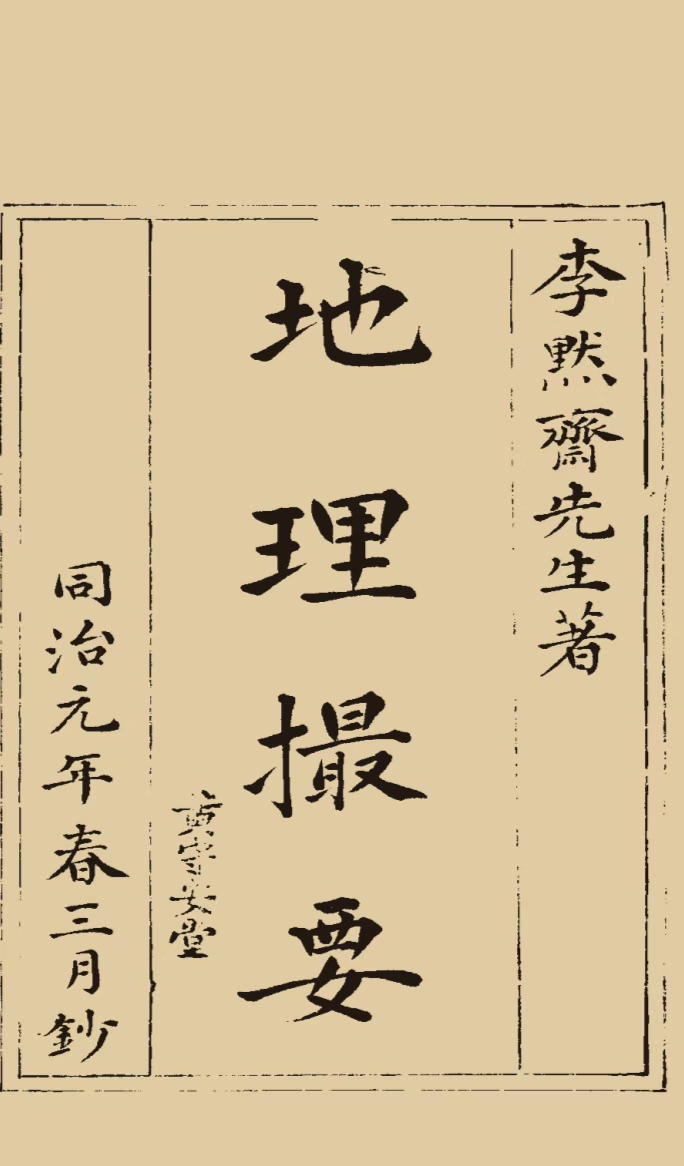 李默齋先生著
地理撮要
黃守安堂
同治元年春三月鈔